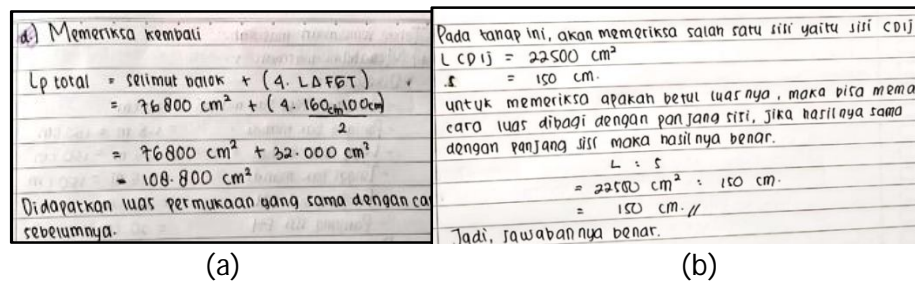 d.) Memeriksa kembali
Lp total = selimut balok + (4. L∆FGT)
= 76800 cm² + (4. 160cm 100cm)
2
= 76800 cm² + 32.000 cm²
= 108.800 cm²
Didapatkan luas permukaan yang sama dengan ca
sebelumnya.
(a)
Pada tahap ini, akan memeriksa salah satu sisi yaitu sisi CDIJ
L CDIJ = 22500 cm²
s = 150 cm.
untuk memeriksa apakah betul luasnya, maka bisa mema
cara luas dibagi dengan panjang sisi, jika hasilnya sama
dengan panjang sisi maka hasilnya benar.
L : s
= 22500 cm² : 150 cm.
= 150 cm.//
Jadi, jawabannya benar.
(b)